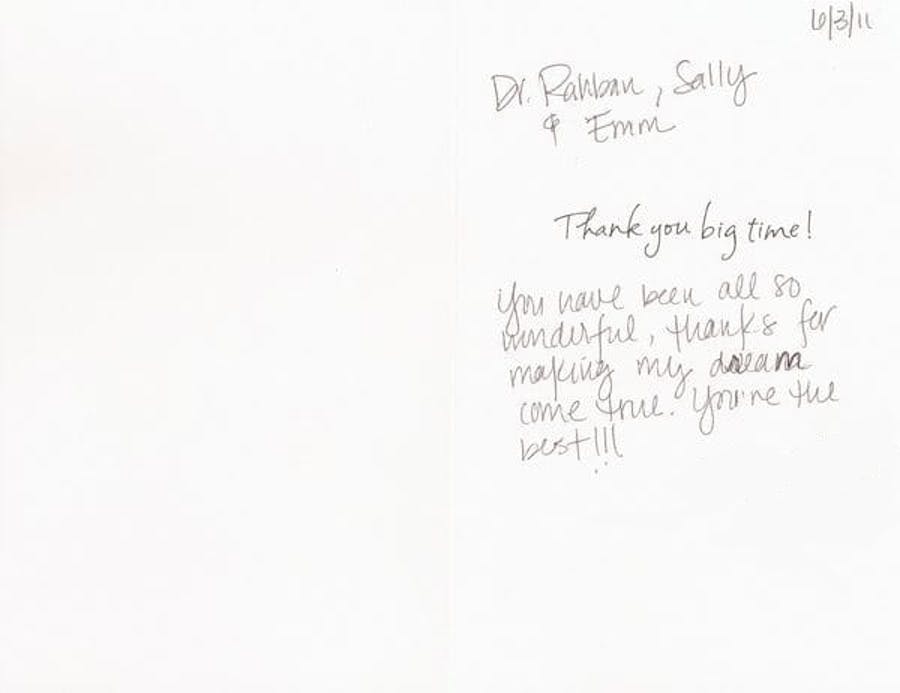 6/3/11
Dr. Rahban, Sally
& Emm
Thank you big time!
You have been all so
wonderful, thanks for
making my dream
come true. You're the
best!!!